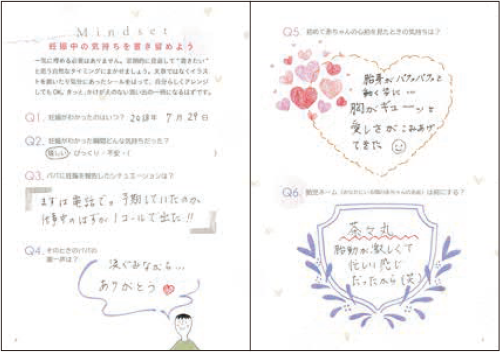 Mindset
妊娠中の気持ちを書き留めよう
一気に埋める必要はありません。定期的に見返して“書きたい”
と思う自然なタイミングにまかせましょう。文章ではなくイラス
トを描いたり気分にあったシールをはって、自分らしくアレンジ
してもOK。きっと、かけがえのない思い出の一冊になるはずです。
Q1. 妊娠がわかったのはいつ? 2018年 7月29日
Q2. 妊娠がわかった瞬間どんな気持ちだった?
嬉しい・びっくり・不安・( )
Q3. パパに妊娠を報告したシチュエーションは?
まずは電話で。予期していたのか、
仕事中のはずが1コールで出た!!
Q4. そのときのパパの
第一声は?
涙ぐみながら…
ありがとう
Q5. 初めて赤ちゃんの心拍を見たときの気持ちは?
胎芽がパクパクパクと
動く姿に…
胸がギューッと
愛しさがこみあげ
てきた
Q6. 胎児ネーム(おなかにいる間の赤ちゃんの名前)は何にする?
茶々丸
胎動が激しくて
忙しい感じ
だったから(笑)